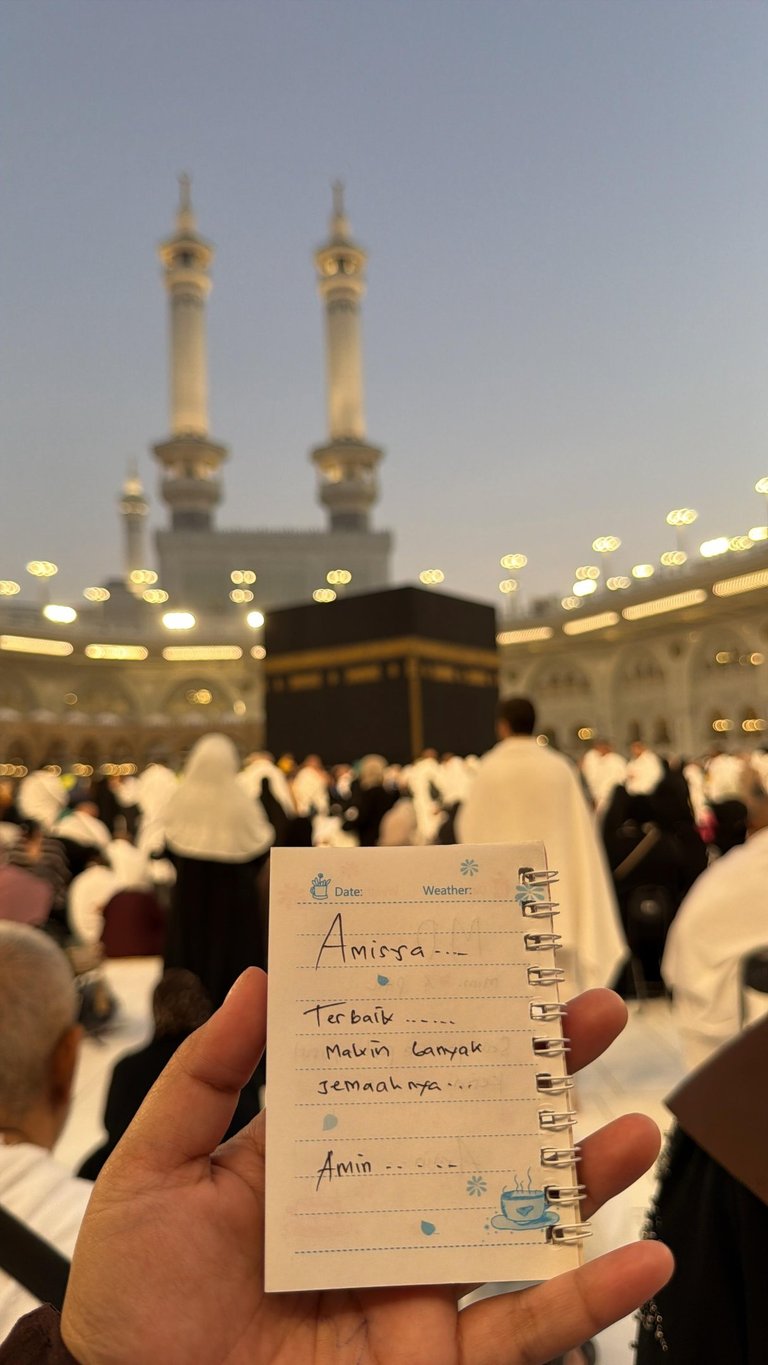 Date: Weather:
Amissa...
Terbaik ......
Makin banyak
jemaahnya...
Amin .. . ...